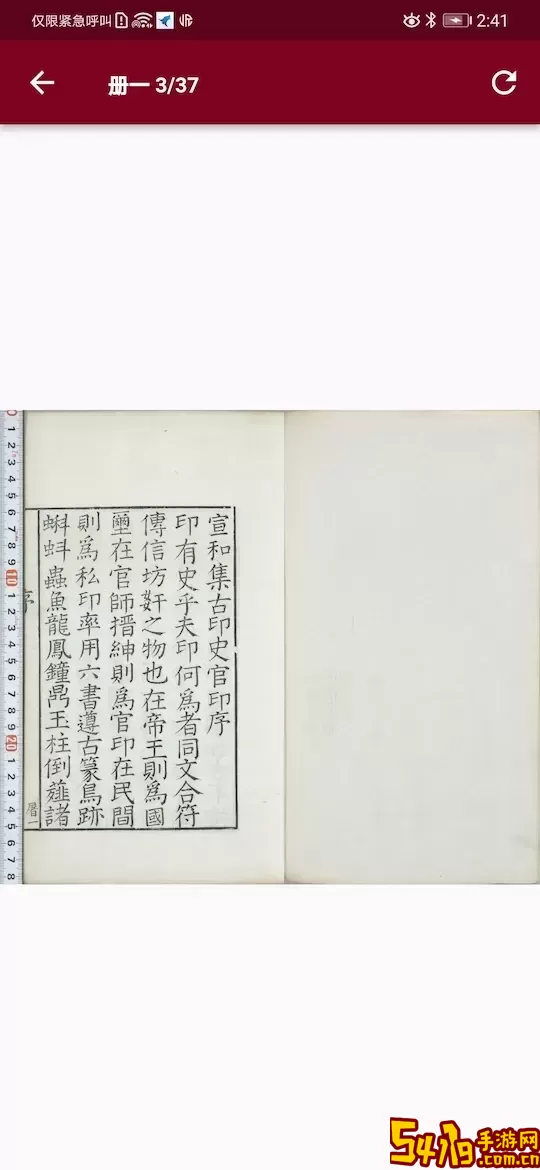 仅限紧急呼叫
2:41
册一 3/37
宣和集古印史官印序
印有史乎夫印何爲者同文合符
傳信坊奸之物也在帝王則爲國
璽在官師搢紳則爲官印在民間
則爲私印率用六書遵古篆鳥跡
蝌蚪蟲魚龍鳳鐘鼎玉柱倒薤諸
序
0 1 2 3 4 5 6 7 8 9 10 1 2 3 4 5 6 7 8 9 20 1 2 3 4 5 6 7 8
5419手游网
.com.cn